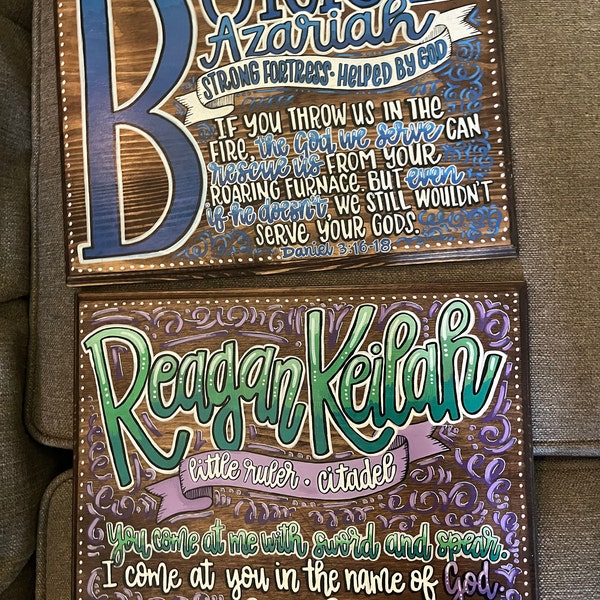 B
Azariah
STRONG FORTRESS · HELPED BY GOD
IF YOU THROW US IN THE
FIRE, the God we serve CAN
rescue us FROM YOUR
ROARING FURNACE. BUT even
if he doesn't, WE STILL WOULDN'T
SERVE YOUR GODS.
Daniel 3:16-18
Reagan Keilah
little ruler · citadel
You come at me with sword and spear.
I come at you in the name of God